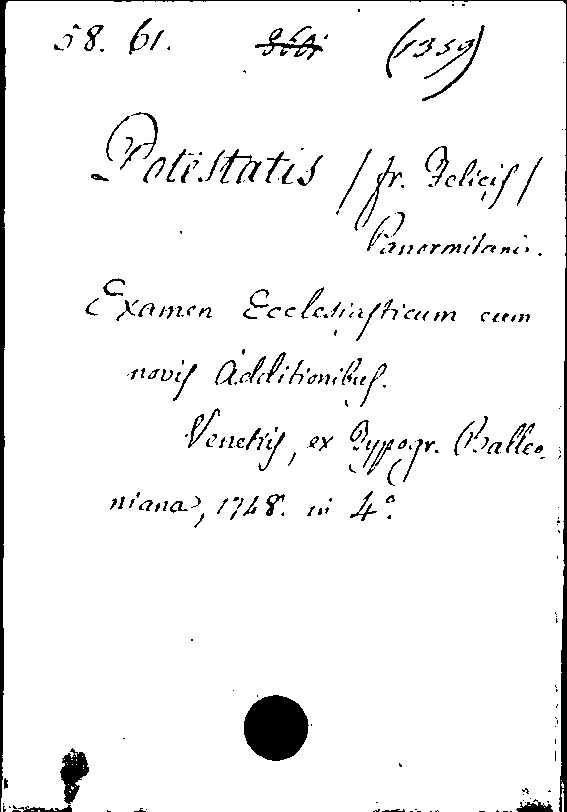 58. 61. (1359)
Potestatis / fr. Felicis /
Panormitani.
Examen Ecclesiasticum cum
novis Additionibus.
Venetiis, ex Typogr. Balleo-
niana, 1748. in 4º.